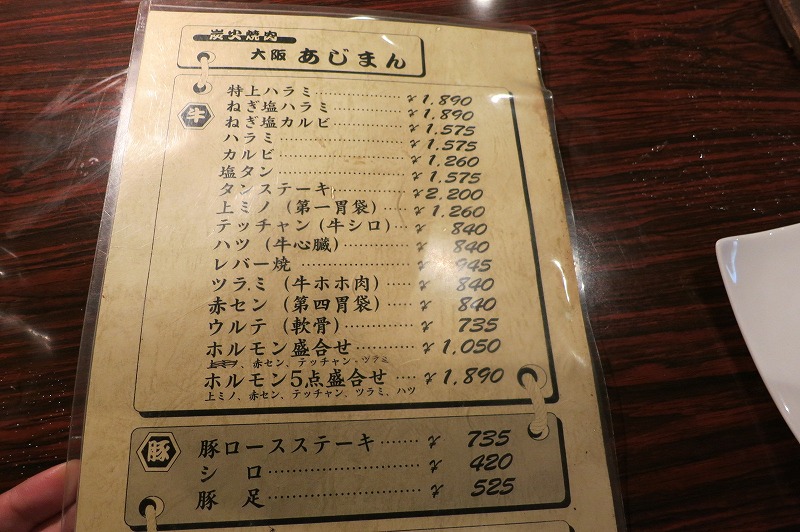 炭火焼肉
大阪 あじまん
牛
特上ハラミ……………¥1,890
ねぎ塩ハラミ…………¥1,890
ねぎ塩カルビ…………¥1,575
ハラミ…………………¥1,575
カルビ…………………¥1,260
塩タン…………………¥1,575
タンステーキ…………¥2,200
上ミノ（第一胃袋）……¥1,260
テッチャン(牛シロ)…¥ 840
ハツ（牛心臓）…………¥ 840
レバー焼………………¥ 945
ツラミ（牛ホホ肉）……¥ 840
赤セン（第四胃袋）……¥ 840
ウルテ（軟骨）…………¥ 735
ホルモン盛合せ………¥1,050
、赤セン、テッチャン・ツラミ
ホルモン5点盛合せ……¥1,890
上ミノ、赤セン、テッチャン、ツラミ、ハツ
豚
豚ロースステーキ………¥ 735
シロ……………………¥ 420
豚足……………………¥ 525